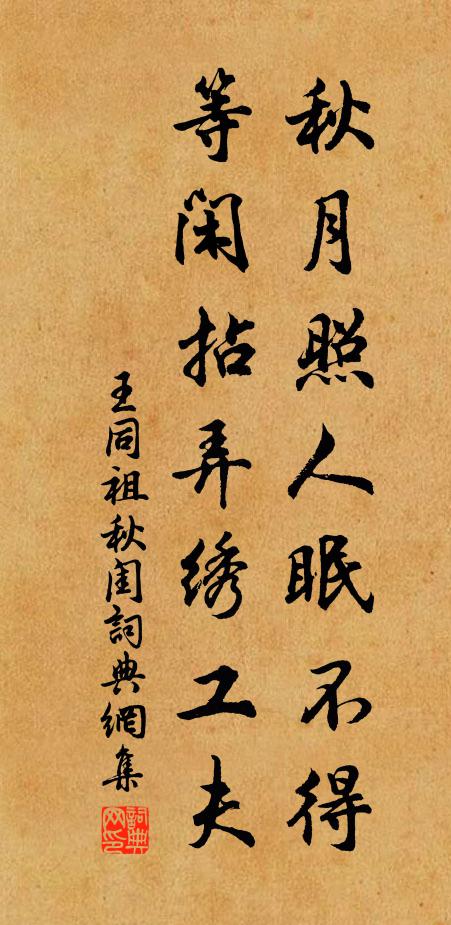 秋月照人眠不得
等闲拈弄绣工夫
王同祖秋闺詞典網集
詞典网印